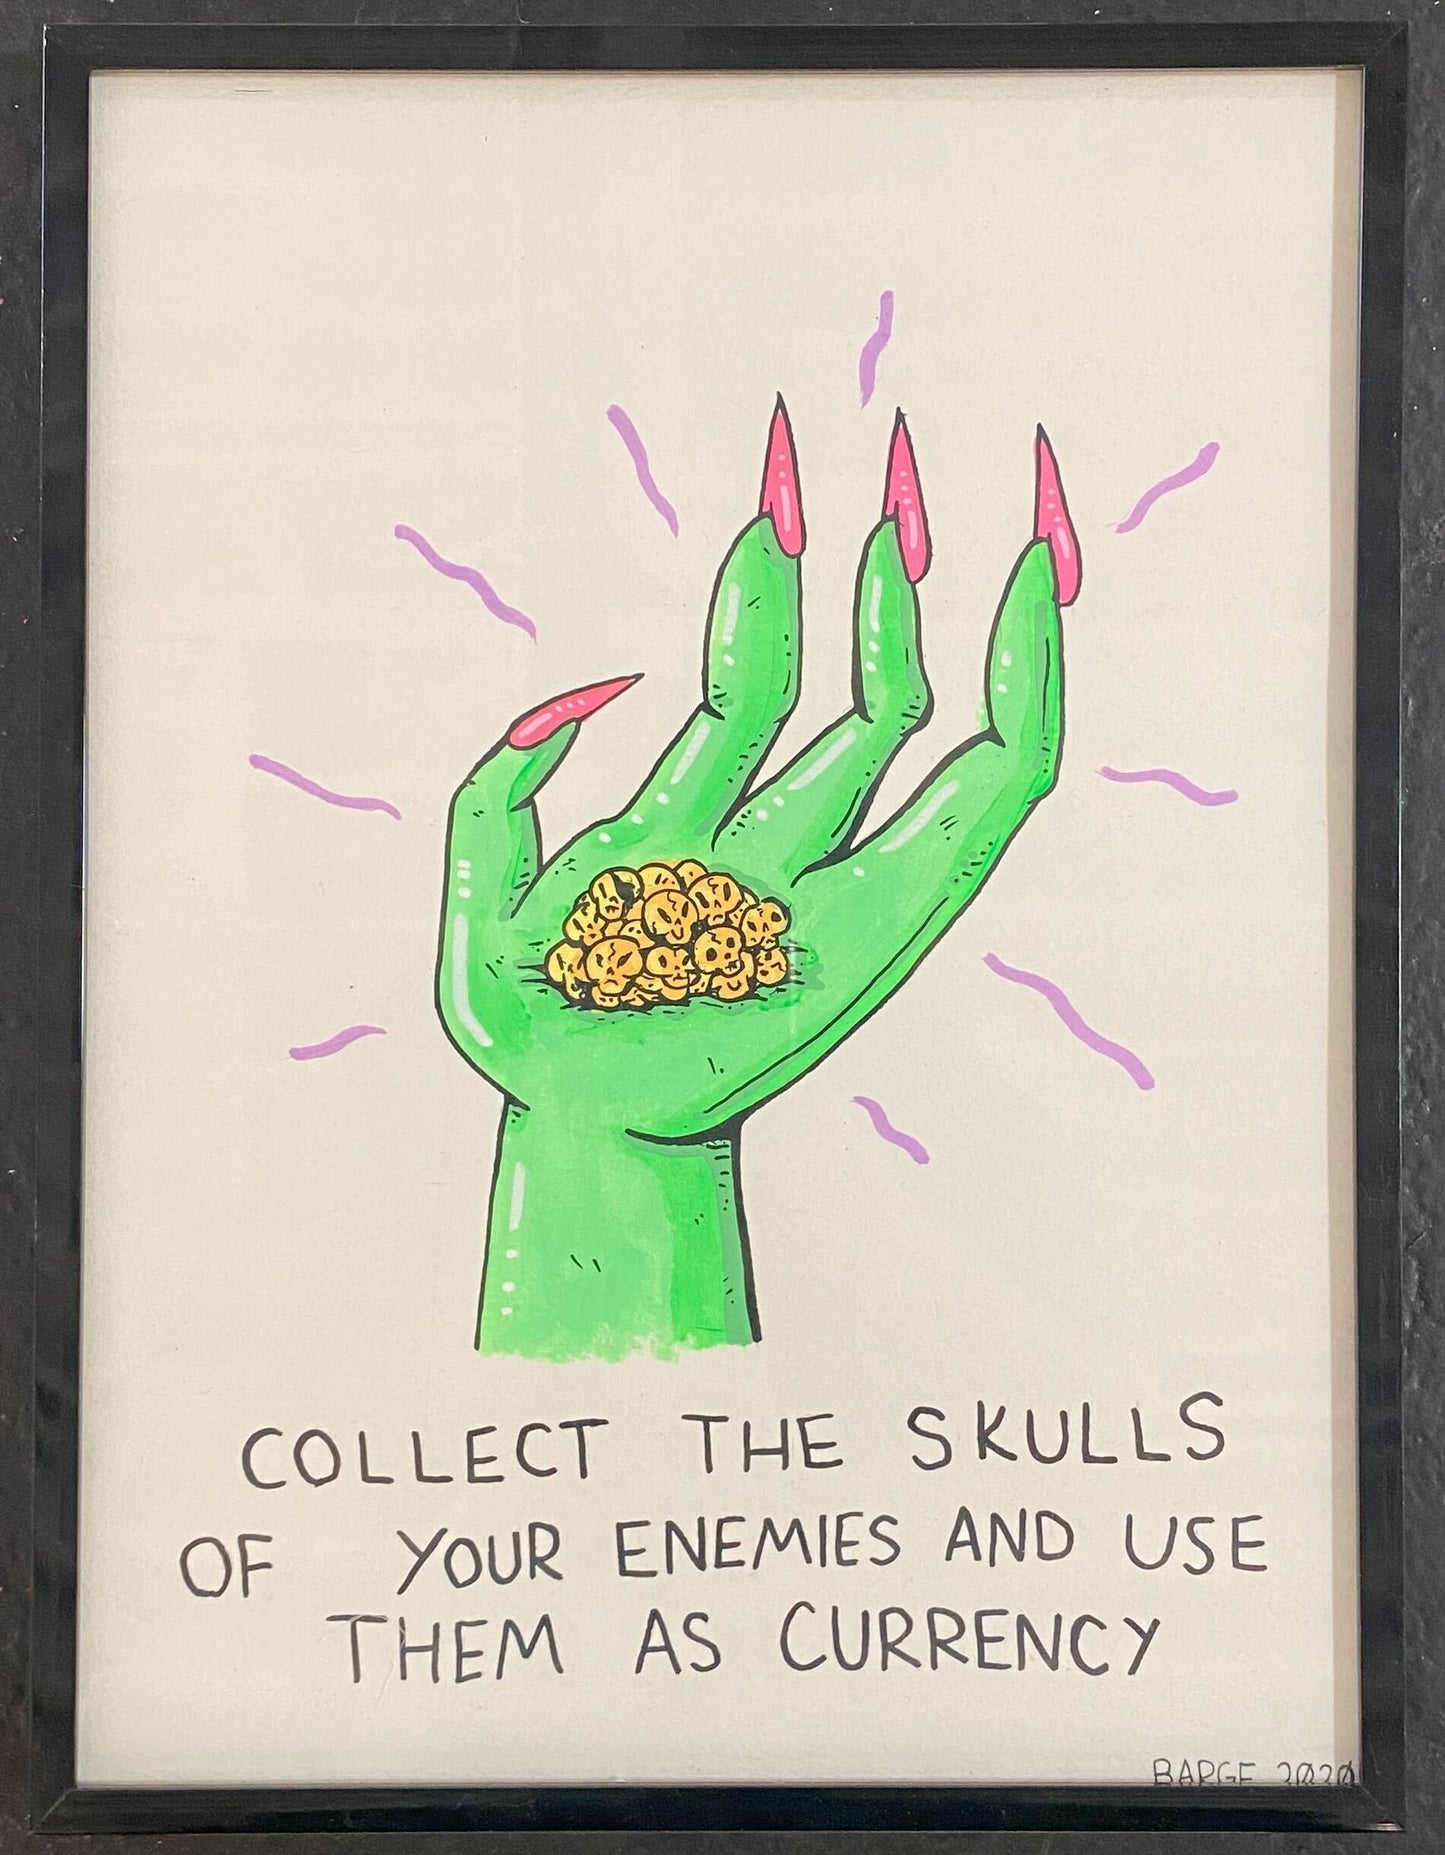 COLLECT THE SKULLS
OF YOUR ENEMIES AND USE
THEM AS CURRENCY
BARGE 2020